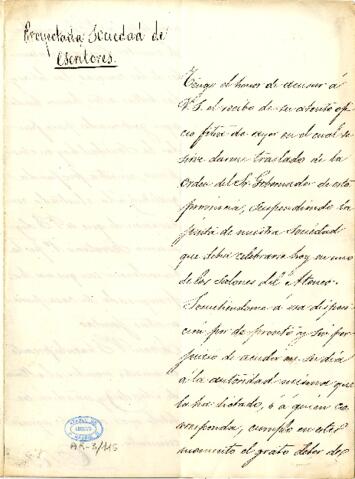 Proyectada Sociedad de
Escritores.
Tengo el honor de acusar á
V.S. el recibo de su atento ofi-
cio fecha de ayer en el cual se
sirve darme traslado de la
Orden del Sr. Gobernador de esta
provincia, suspendiendo la
junta de nuestra sociedad
que debia celebrarse hoy en uno
de los salones del Ateneo.
Sometiéndome á esa disposi-
cion por de pronto, y sin per-
juicio de acudir en su dia
á la autoridad misma que
la ha dictado, ó á quien co-
rresponda, cumplo en este
momento el grato deber de
AR-3/115